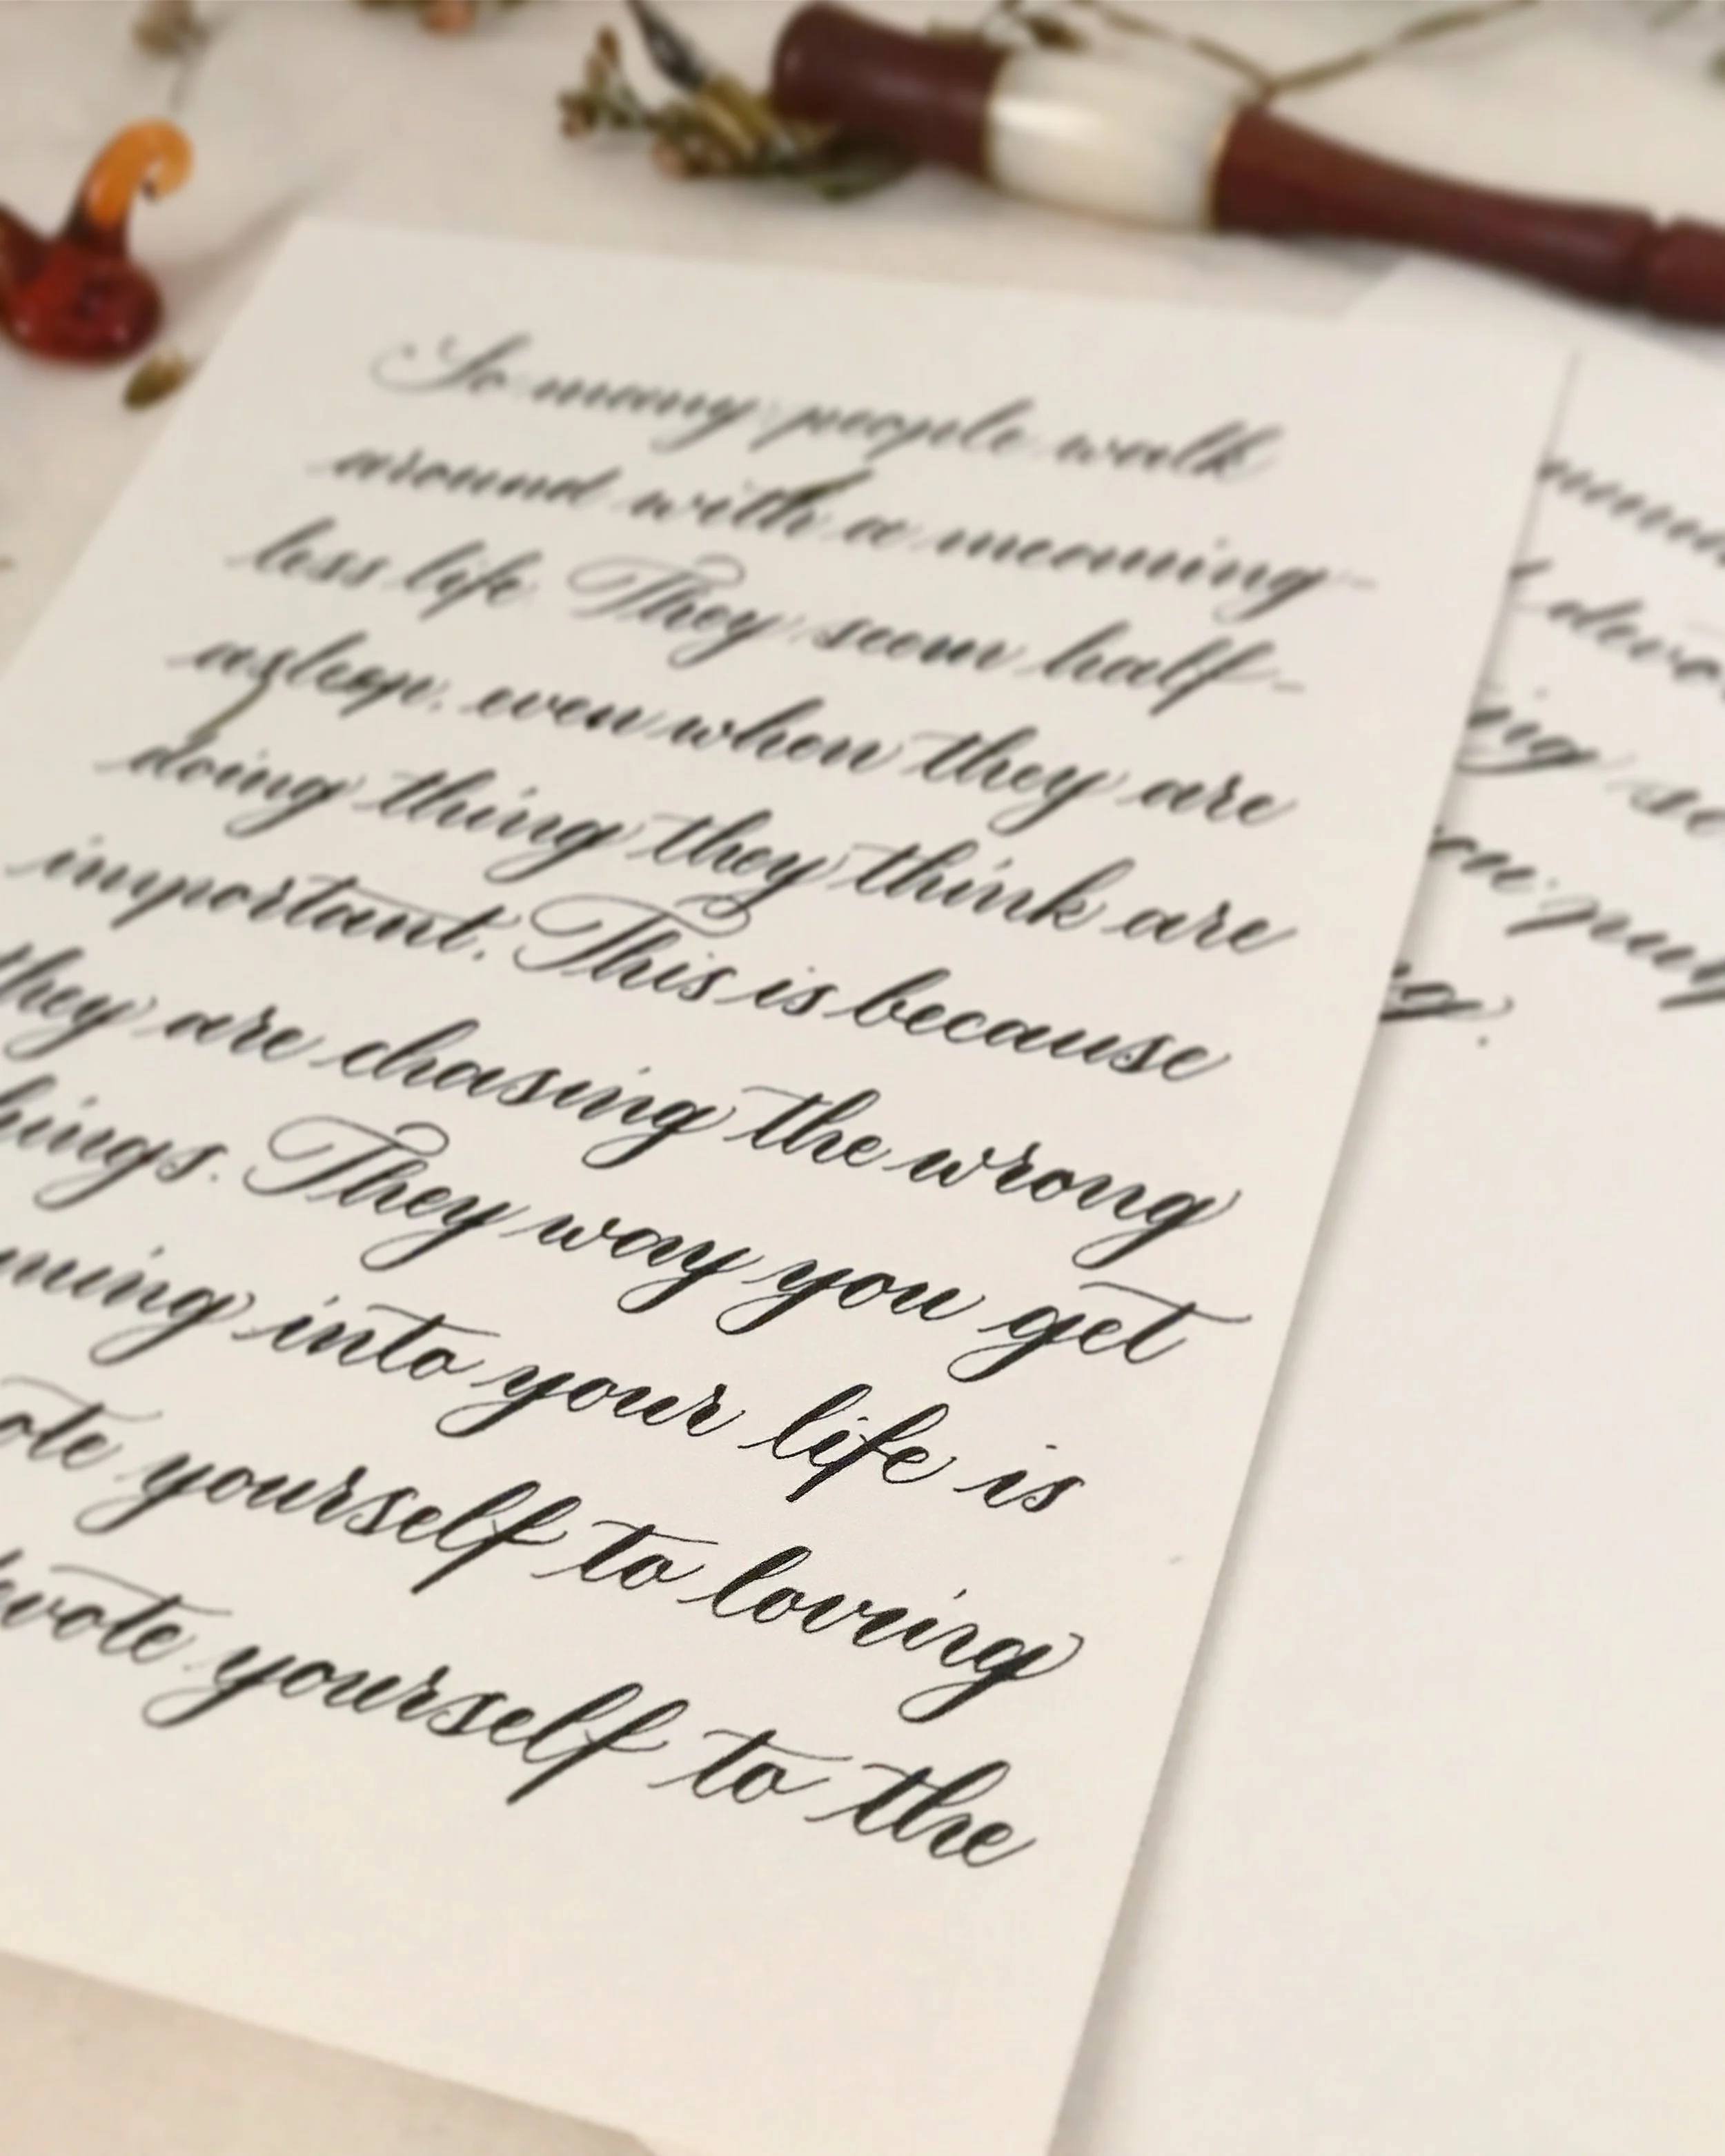 So many people walk
around with a meaning-
less life. They seem half-
asleep, even when they are
doing thing they think are
important. This is because
they are chasing the wrong
hings. They way you get
ning into your life is
ote yourself to loving
evote yourself to the
devo
ing